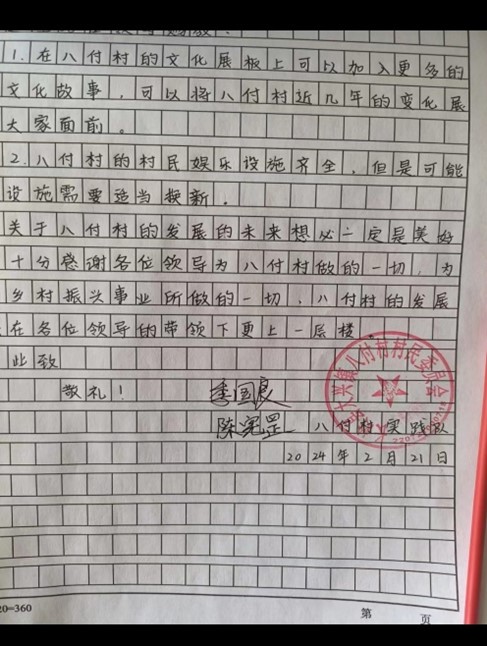 1.在八付村的文化展板上可以加入更多的
文化故事，可以将八付村近几年的变化展
大家面前。
2.八付村的村民娱乐设施齐全，但是可能
设施需要适当换新。
关于八付村的发展的未来想必一定是美好
十分感谢各位领导为八付村做的一切，为
乡村振兴事业所做的一切，八付村的发展
在各位领导的带领下更上一层楼
此致
敬礼！
李国良
八付村实践队
2024年2月21日
20=360
第 页